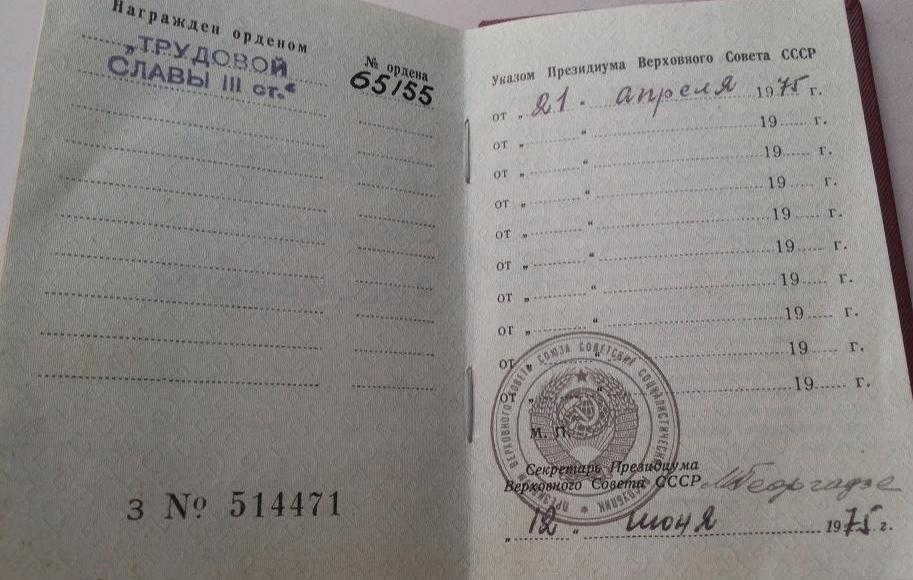 Награжден орденом
№ ордена
„ТРУДОВОЙ
СЛАВЫ III ст.“
65155
З № 514471
Указом Президиума Верховного Совета СССР
от „ 21 “ апреля 1975 г.
от „ “ 19 г.
от „ “ 19 г.
от „ “ 19 г.
от „ “ 19 г.
от „ “ 19 г.
от „ “ 19 г.
от „ “ 19 г.
от „ “ 19 г.
от „ “ 19 г.
ПРЕЗИДИУМ ВЕРХОВНОГО СОВЕТА СОЮЗА СОВЕТСКИХ СОЦИАЛИСТИЧЕСКИХ РЕСПУБЛИК
М. П.
Секретарь Президиума
Верховного Совета СССР МГеоргадзе
„ 12 “ июня 1975 г.